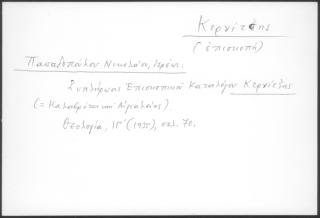 Κερνίτσης
(ἐπισκοπή)
Παπαδοπούλου Νικολάου, Ἱερέως:
Συμπλήρωσις Ἐπισκοπικοῦ Καταλόγου Κερνίτσης
(= Καλαβρύτων καὶ Αἰγιαλείας)
Θεολογία, ΙΓ' (1935), σελ. 70.